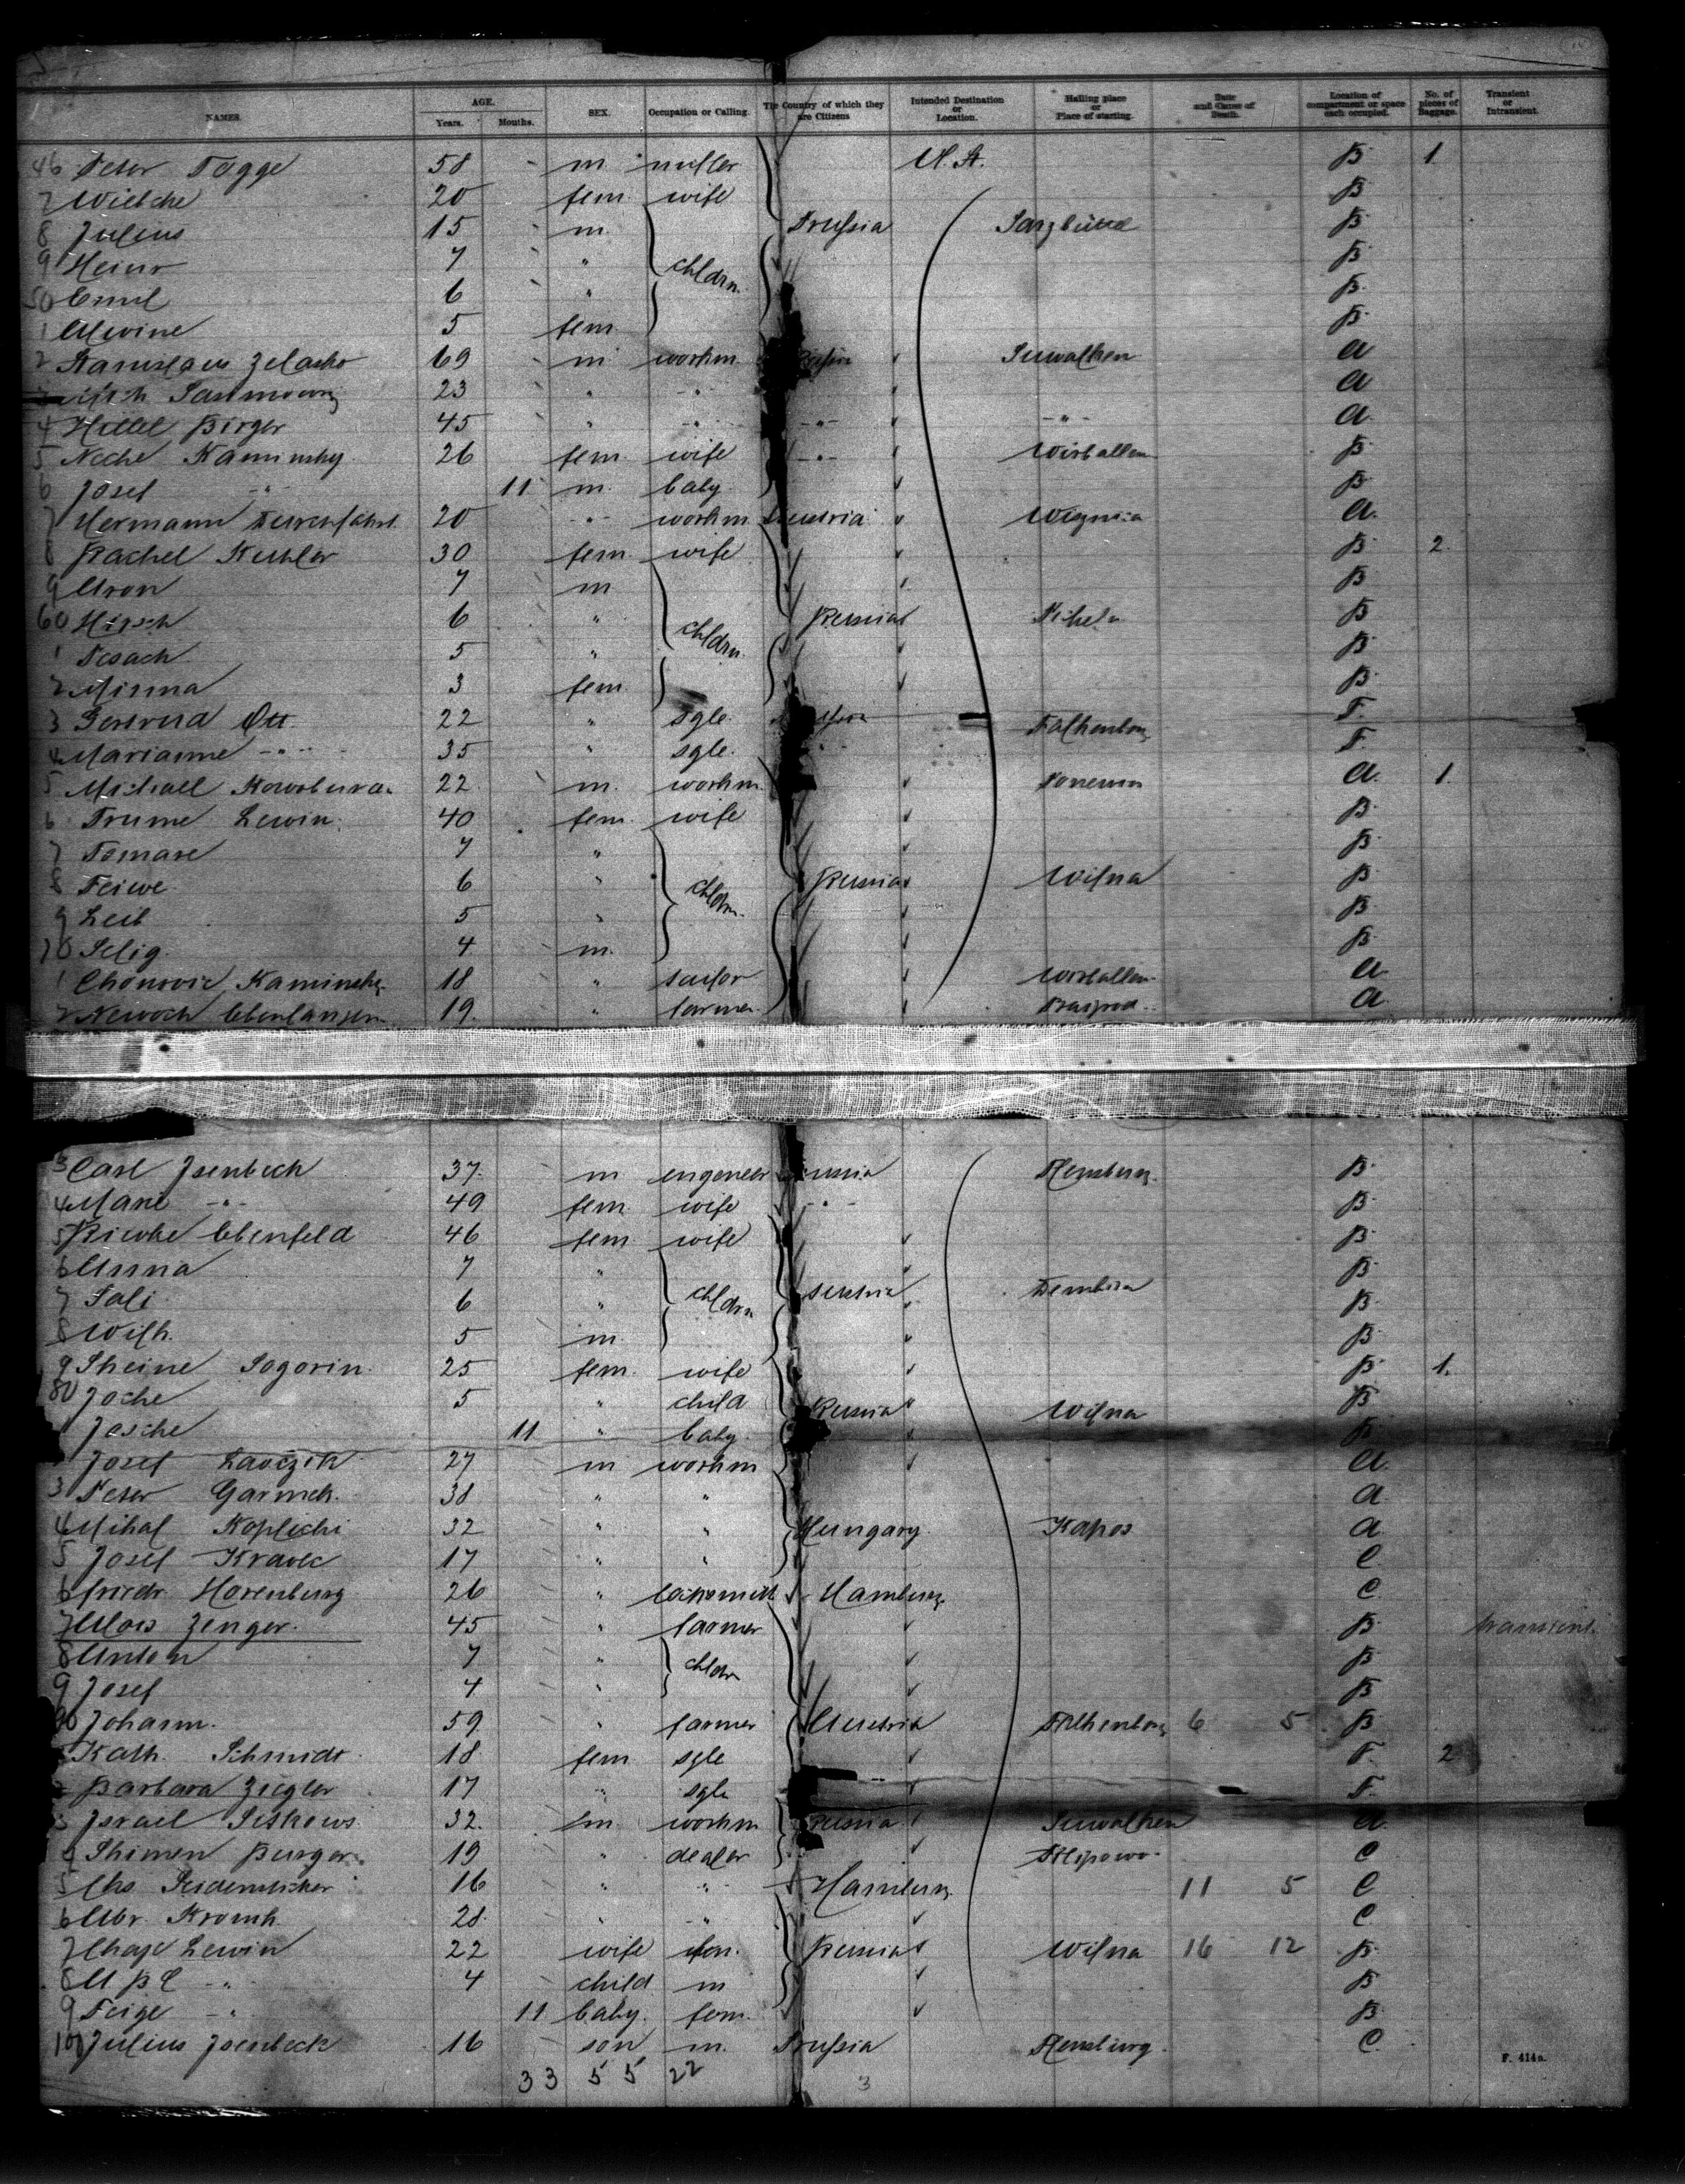 NAMES. AGE. Years. Months. SEX. Occupation or Calling. The Country of which they are Citizens Intended Destination or Location. Hailing place or Place of starting. Date and Cause of Death. Location of compartment or space each occupied. No. of pieces of Baggage. Transient or Intransient.
46 Peter Tagge 58 m miller U.St. B 1
7 Wiebche 20 fem wife B
8 Julius 15 m Prussia B
9 Heinr 7 " chldrn. B
50 Emil 6 " B
1 Alwine 5 fem B
2 Stanislaus Zelasko 69 m workm. Russia Suwalken a
23 " -"- a
4 Hillel Birger 45 " -"- -"- -"- a
5 Neche Kaminsky 26 fem wife -"- Wirballen B
6 Josef -"- 11 m. baby B
7 Hermann 20 -"- workm Austria a.
8 Rachel 30 fem wife B 2
9 Aron 7 m B
60 Hirsch 6 " chldrn. Russia B
1 Pesach 5 " B
2 Minna 3 fem B
3 Gertrud Ott 22 " sgle. Falkenberg F.
4 Marianne -"- 35 " sgle. -"- F.
5 Michael 22 m. workm a. 1.
6 Frume Lewin 40 fem wife B
7 7 " B
8 Feiwe 6 " chldrn. Russia Wilna B
9 Leib 5 " B
70 Selig 4 m. B
1 Kaminsky 18 " tailor Wirballen a
2 19 " farmer a
3 Carl Isenbeck 37 m engeneer Flensburg. B
4 Marie -"- 49 fem wife -"- B
5 Riwke Ebenfeld 46 fem wife B
6 Anna 7 " B
7 Sali 6 " chldrn Austria Dembica B
8 Wilh. 5 m B
9 Sheine Sogorin 25 fem. wife B 1.
80 Joche 5 " child Russia Wilna B
1 Josche 11 " baby B
Josef 27 m workm a.
3 Peter 38 " " a
4 Mihal 32 " " Hungary Kapos a
5 Josef Kravec 17 " " C
6 Friedr. Horenburg 26 " Hamburg. C
7 Alois Zenger 45 " farmer B transient.
8 Anton 7 " chldrn B
9 Josef 4 " B
90 Johann. 59 " farmer Austria 6 5 B
Kath. Schmidt 18 fem sgle F. 2
Barbara Ziegler 17 " sgle F.
3 Israel 32 m workm Russia Suwalken a
4 Shimen Burger 19 " dealer C
5 16 " " Hamburg 11 5 C
6 Abr. 28 " -"- C
7 Chaje Lewin 22 wife fem. Russia Wilna 16 12 B
8 -"- 4 child m B
9 Feige -"- 11 baby. fem. B
100 Julius Isenbeck 16 son m. Prussia Flensburg C
33 55 22 3
F. 414a.